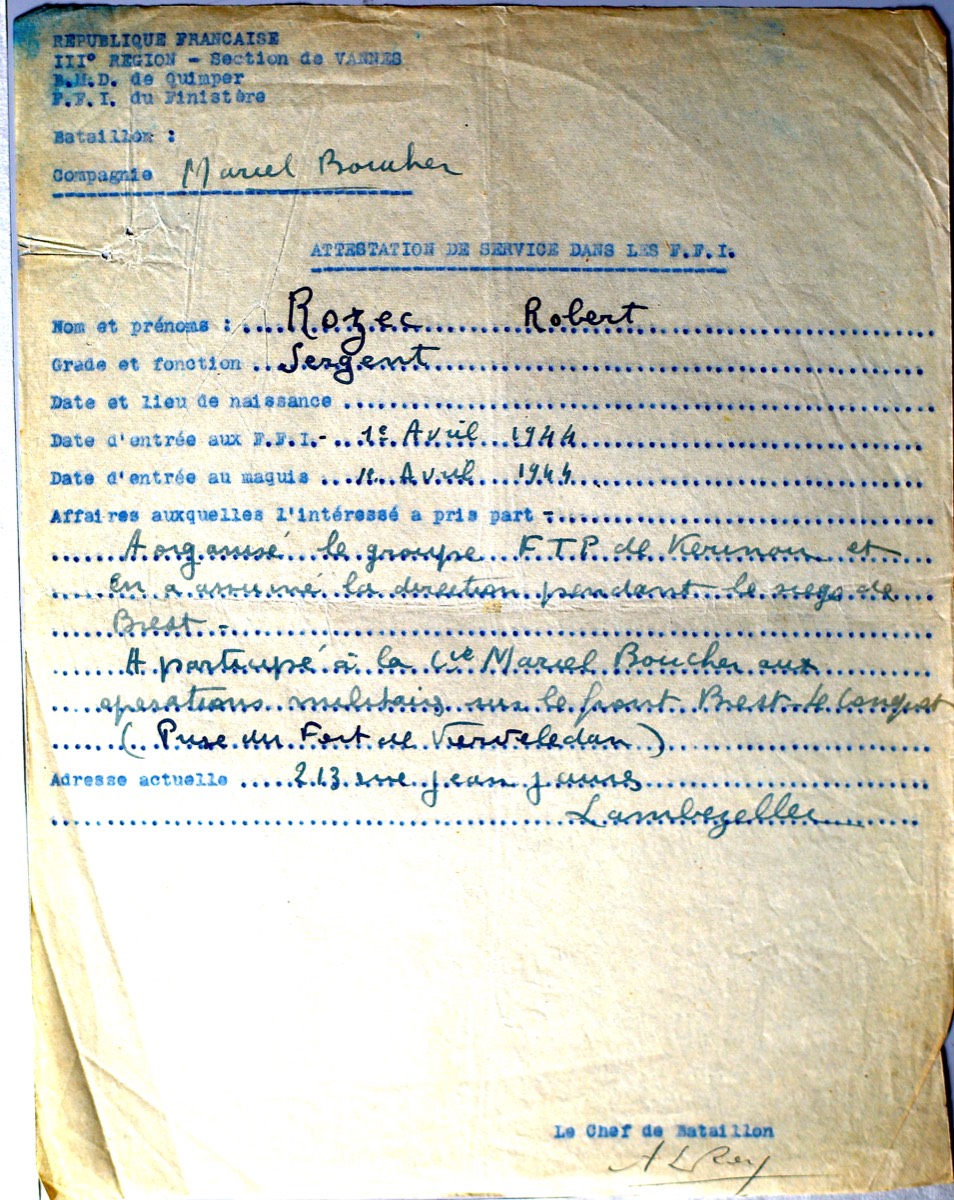 REPUBLIQUE FRANCAISE
III° REGION - Section de VANNES
B.M.D. de Quimper
F.F.I. du Finistère
Bataillon :
Compagnie Marcel Boucher
ATTESTATION DE SERVICE DANS LES F.F.I.
Nom et prénoms : Rozec Robert
Grade et fonction Sergent
Date et lieu de naissance
Date d'entrée aux F.F.I.- 1e Avril 1944
Date d'entrée au maquis Avril 1944
Affaires auxquelles l'intéressé a pris part -
A organisé le groupe F T P de Kerinou et
en a assumé la direction pendant le siege de
Brest -
A participé à la Cie Marcel Boucher aux
operations militaires sur le front Brest-le Conquet
( Prise du Fort de )
Adresse actuelle 213 rue jean jaures
Lambezellec
Le Chef de Bataillon